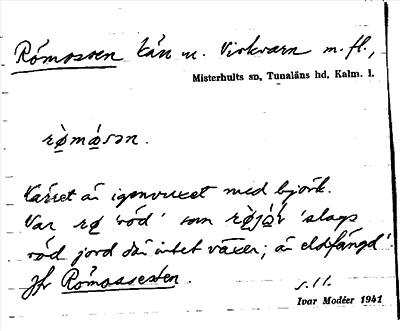 Römossen kärr u. Virkvarn m.fl.,
Misterhults sn, Tunaläns hd, Kalm. l.
rø̀mǿsən.
Kärret är igenvuxet med björk.
Var rø 'röd' som 'slags
röd jord där intet växer, är eldfängd'.
Jfr Römossesten.
s.11.
Ivar Modéer 1941